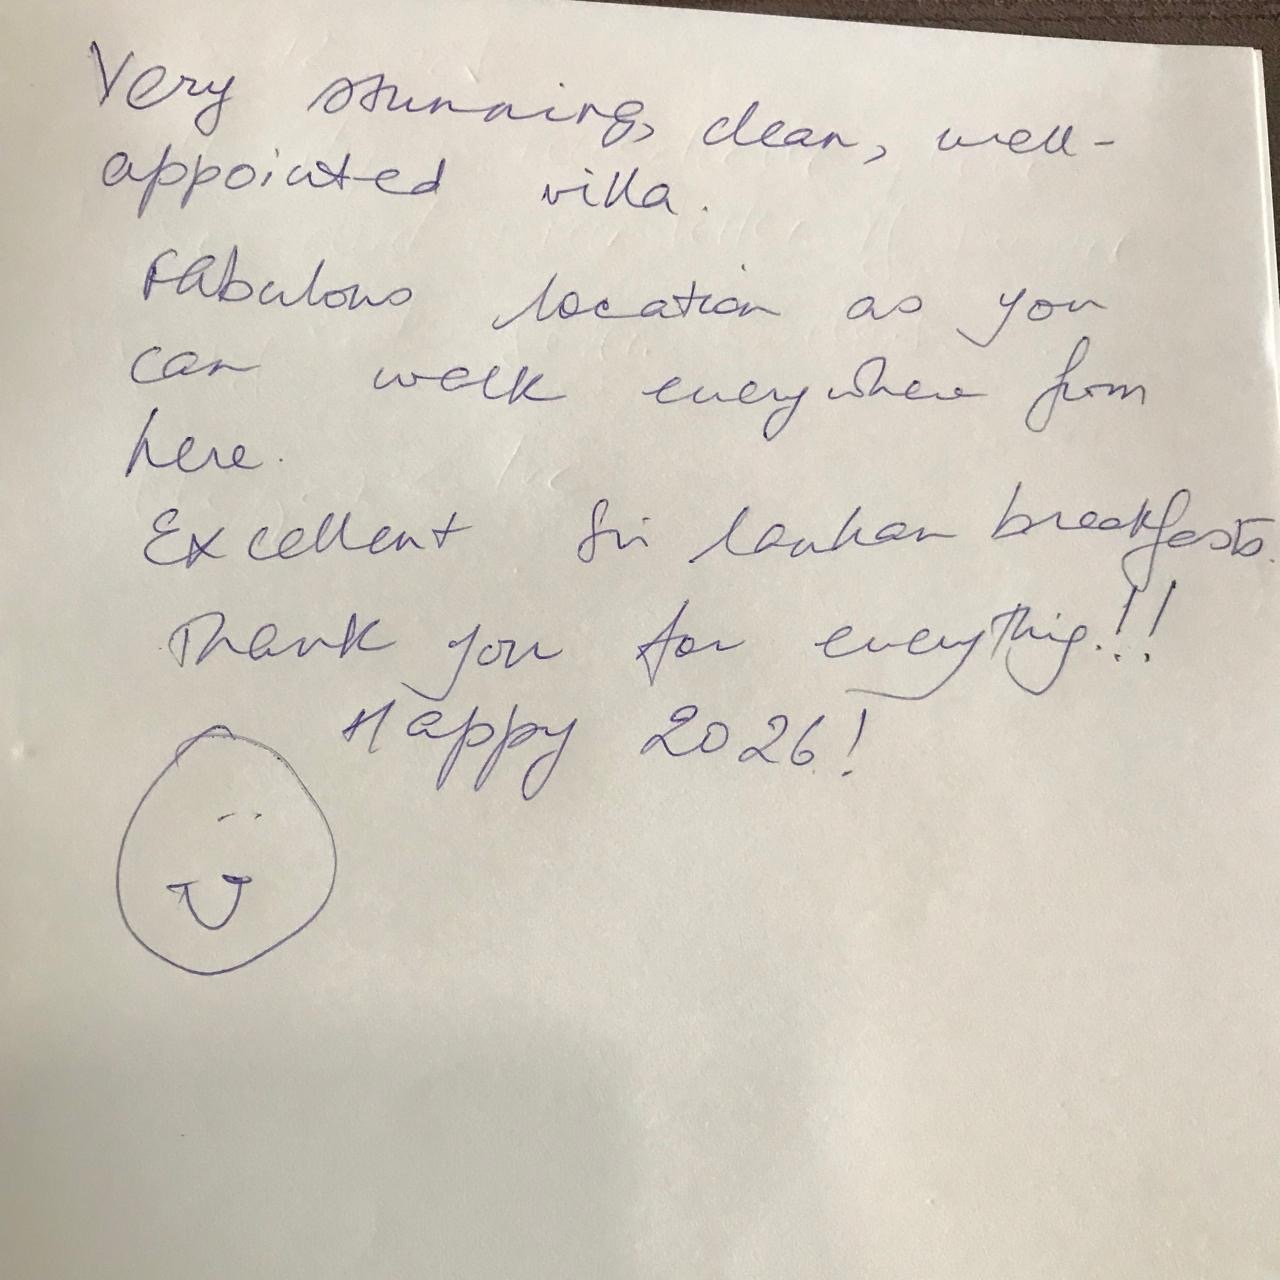 Very stunning, clean, well-
appointed villa.
Fabulous location as you
can walk everywhere from
here.
Excellent Sri lankan breakfasts.
Thank you for everything!!!
Happy 2026!